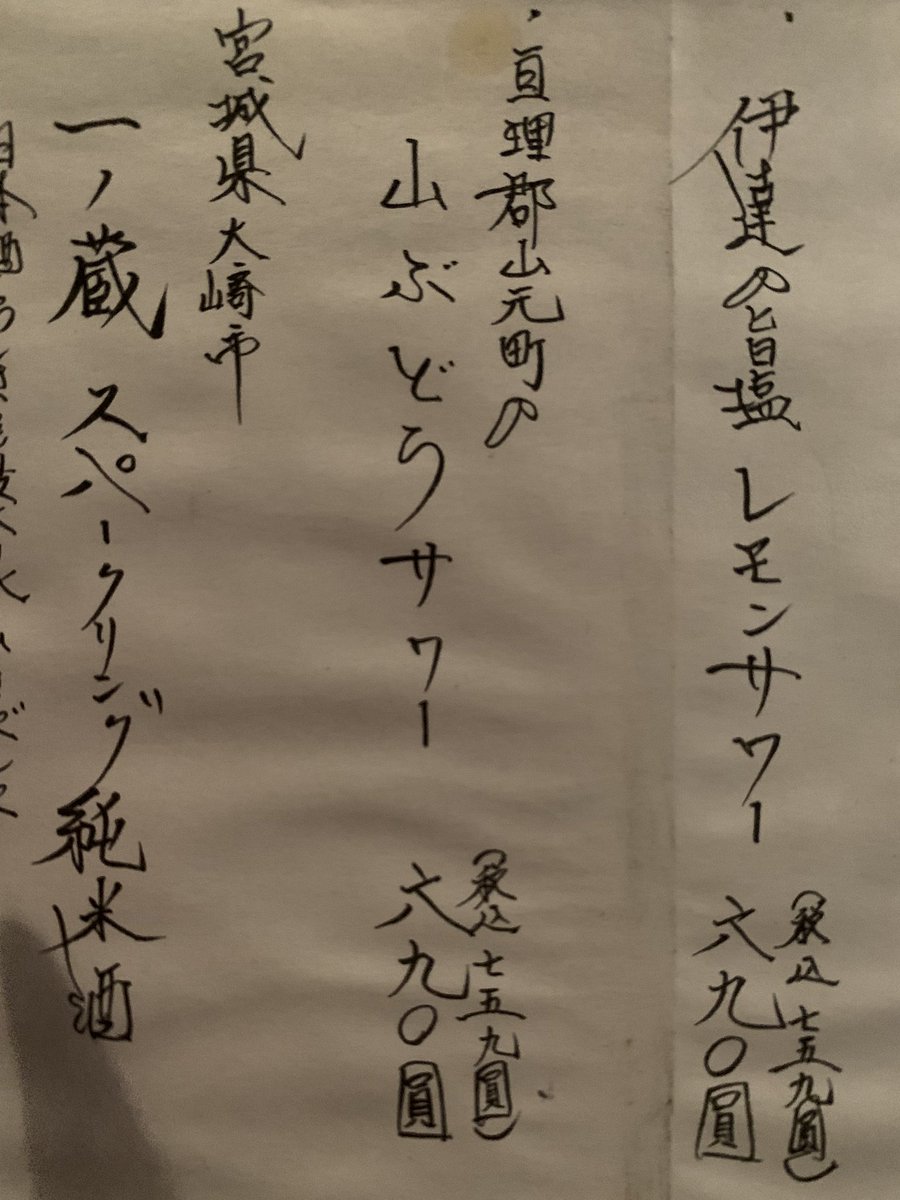 ・
伊達の旨塩レモンサワー
(税込七五九圓)
六九〇圓
・亘理郡山元町の
山ぶどうサワー
(税込七五九圓)
六九〇圓
宮城県大崎市
一ノ蔵 スパークリング純米酒
日本酒